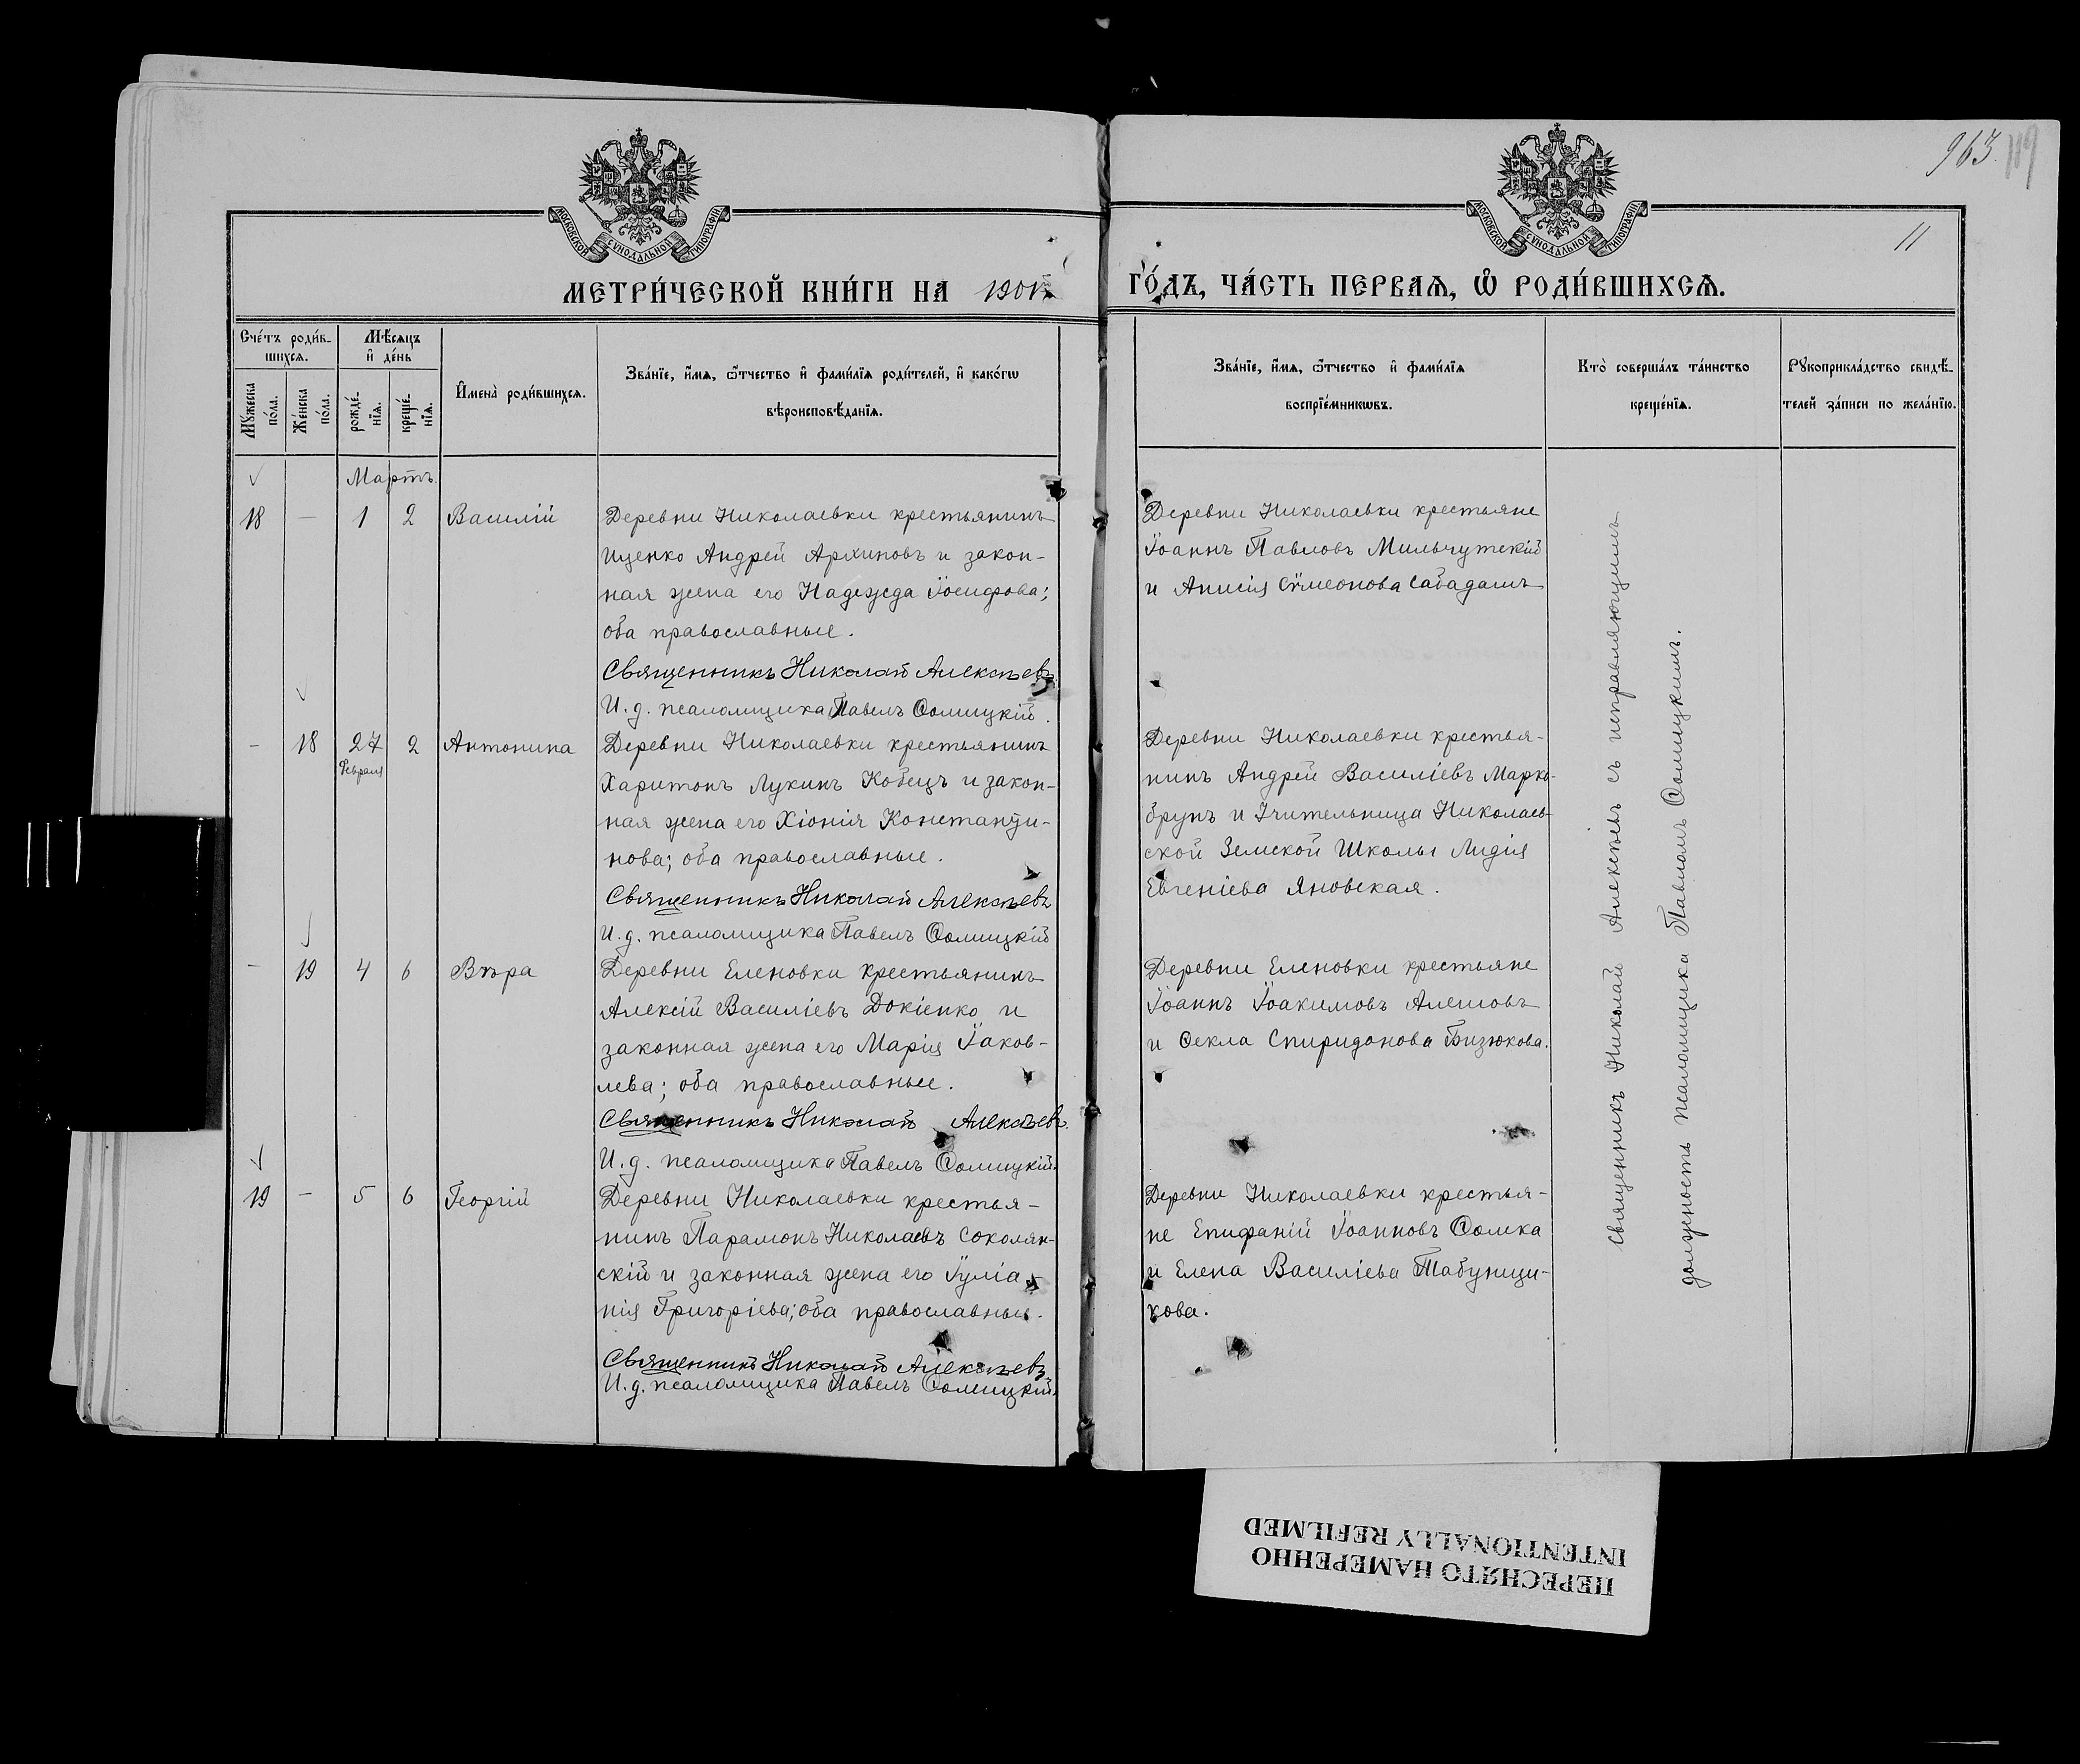 963.
11
МОСКОВСКОЙ СѴНОДАЛЬНОЙ ТИПОГРАФІИ
МОСКОВСКОЙ СѴНОДАЛЬНОЙ ТИПОГРАФІИ
МЕТРИ́ЧЕСКОЙ КНИ́ГИ НА 1901
ГО́ДЪ, ЧА́СТЬ ПЕРВАѦ, Ѽ РОДИ́ВШИХСѦ.
Сче́тъ роди́в-
шихсѧ.
Мѣ́сѧцъ
и҆ де́нь
Мꙋ́жеска по́ла.
Же́нска по́ла.
рожде́-
нїѧ.
креще́-
нїѧ.
И҆мена̀ роди́вшихсѧ.
Зва́нїе, и҆́мѧ, ѻ҆́тчество и҆ фами́лїѧ роди́телей, и҆ како́гѡ
вѣроисповѣ́данїѧ.
Зва́нїе, и҆́мѧ, ѻ҆́тчество и҆ фами́лїѧ
воспрїе́мникѡвъ.
Кто̀ соверша́лъ та́инство
креще́нїѧ.
Рꙋкоприкла́дство свидѣ́-
телей за́писи по жела́нїю.
Мартъ.
18 — 1 2 Василій
Деревни Николаевки крестьянинъ
Ищенко Андрей Архиповъ и закон-
ная жена его Надежда Іосифова;
оба православные.
Священникъ Николай Алексѣевъ
И. д. псаломщика Павелъ Сомицкій.
Деревни Николаевки крестьяне
Іоаннъ Павловъ Мильчутскій
и Анисія Сѵмеонова Сабадашъ
— 18 27 2 Антонина
Февраля
Деревни Николаевки крестьянинъ
Харитонъ Лукинъ Кобецъ и закон-
ная жена его Хіонія Константи-
нова; оба православные.
Священникъ Николай Алексѣевъ
И. д. псаломщика Павелъ Сомицкій
Деревни Николаевки крестья-
нинъ Андрей Василіевъ Марко-
брунъ и Учительница Николаев-
ской Земской Школы Лидія
Евгеніева Яновская.
— 19 4 6 Вѣра
Деревни Еленовки крестьянинъ
Алексій Василіевъ Докіенко и
законная жена его Марія Іаков-
лева; оба православные.
Священникъ Николай Алексѣевъ.
И. д. псаломщика Павелъ Сомицкій.
Деревни Еленовки крестьяне
Іоаннъ Іоакимовъ Алешовъ
и Ѳекла Спиридонова Бизюкова.
19 — 5 6 Георгій
Деревни Николаевки крестья-
нинъ Парамонъ Николаевъ Соколян-
скій и законная жена его Іуліа-
нія Григоріева; оба православные.
Священникъ Николай Алексѣевъ
И. д. псаломщика Павелъ Сомицкій.
Деревни Николаевки крестья-
не Епифаній Іоанновъ Сомка
и Елена Василіева Табунщи-
кова.
Священникъ Николай Алексѣевъ съ исправляющимъ
должность псаломщика Павломъ Сомицкимъ.
ПЕРЕСНЯТО НАМЕРЕННО
INTENTIONALLY REFILMED